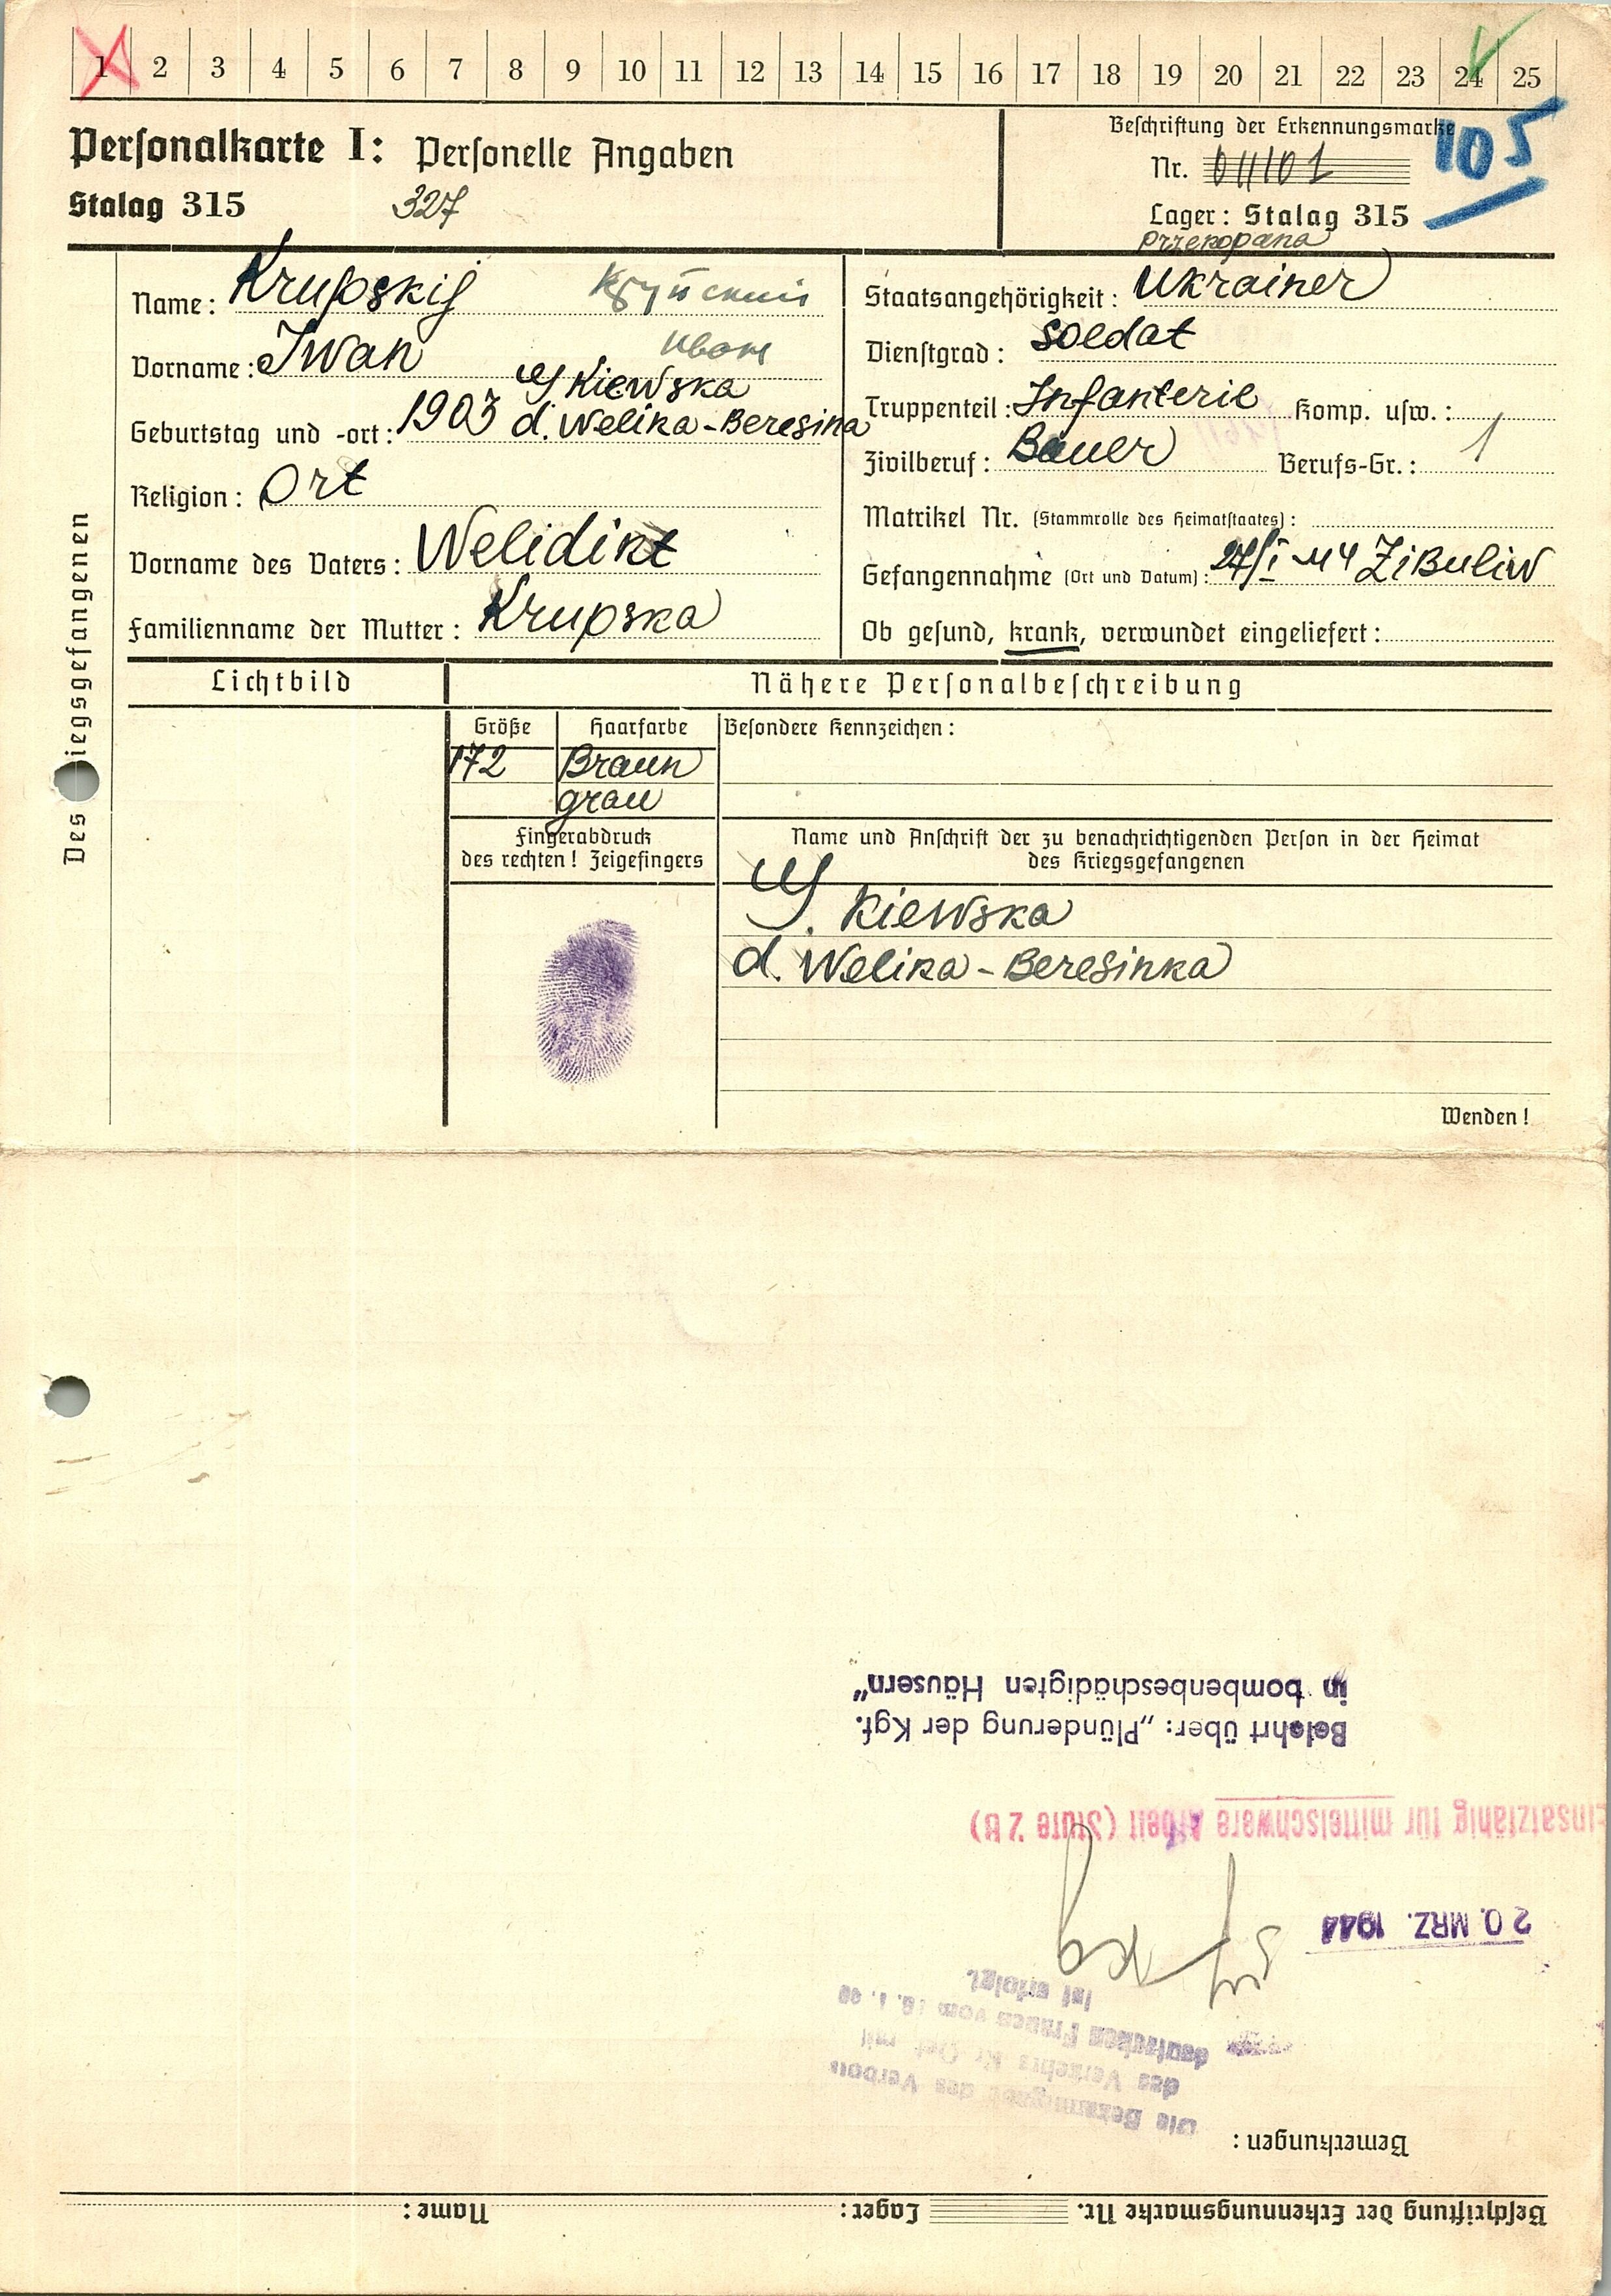 1 2 3 4 5 6 7 8 9 10 11 12 13 14 15 16 17 18 19 20 21 22 23 24 25
Personalkarte I: Personelle Angaben
Stalag 315 327
Beschriftung der Erkennungsmarke
105
Nr.
Lager: Stalag 315
Przekopana
Des iegsgefangenen
Name: Krupskij Крупский
Vorname: Iwan Иван
Kiewska
Geburtstag und -ort: 1903 d. Welika-Beresina
Religion: Ort
Vorname des Vaters: Welidikt
Familienname der Mutter: Krupska
Staatsangehörigkeit: Ukrainer
Dienstgrad: Soldat
Truppenteil: Infanterie Komp. usw.:
Zivilberuf: Bauer Berufs-Gr.: 1
Matrikel Nr. (Stammrolle des Heimatstaates):
Gefangennahme (Ort und Datum): 27/I 44 Zibuliw
Ob gesund, krank, verwundet eingeliefert:
Lichtbild
Nähere Personalbeschreibung
Größe Haarfarbe Besondere Kennzeichen:
172 Braun
grau
Fingerabdruck
des rechten! Zeigefingers
Name und Anschrift der zu benachrichtigenden Person in der Heimat
des Kriegsgefangenen
Kiewska
d. Welika-Beresinka
Wenden!
Beschriftung der Erkennungsmarke Nr. Lager: Name:
Bemerkungen:
Die des Verbots
des mit
deutschen Frauen vom
ist erfolgt.
20. MRZ. 1944
Einsatzfähig für mittelschwere Arbeit (Stufe 2 B)
Belehrt über: „Plünderung der Kgf.
in bombenbeschädigten Häusern"